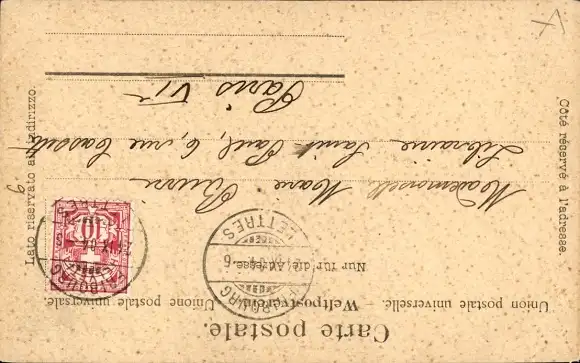 Carte postale.
Union postale universelle. — Weltpostverein. — Unione postale universale.
Nur für die Adresse.
Côté réservé à l'adresse.
Lato riservato all'indirizzo.
LETTRES
FRIBOURG
10
Mademoiselle Marie
Librairie Saint Paul, 6, rue Cassette
Paris VI